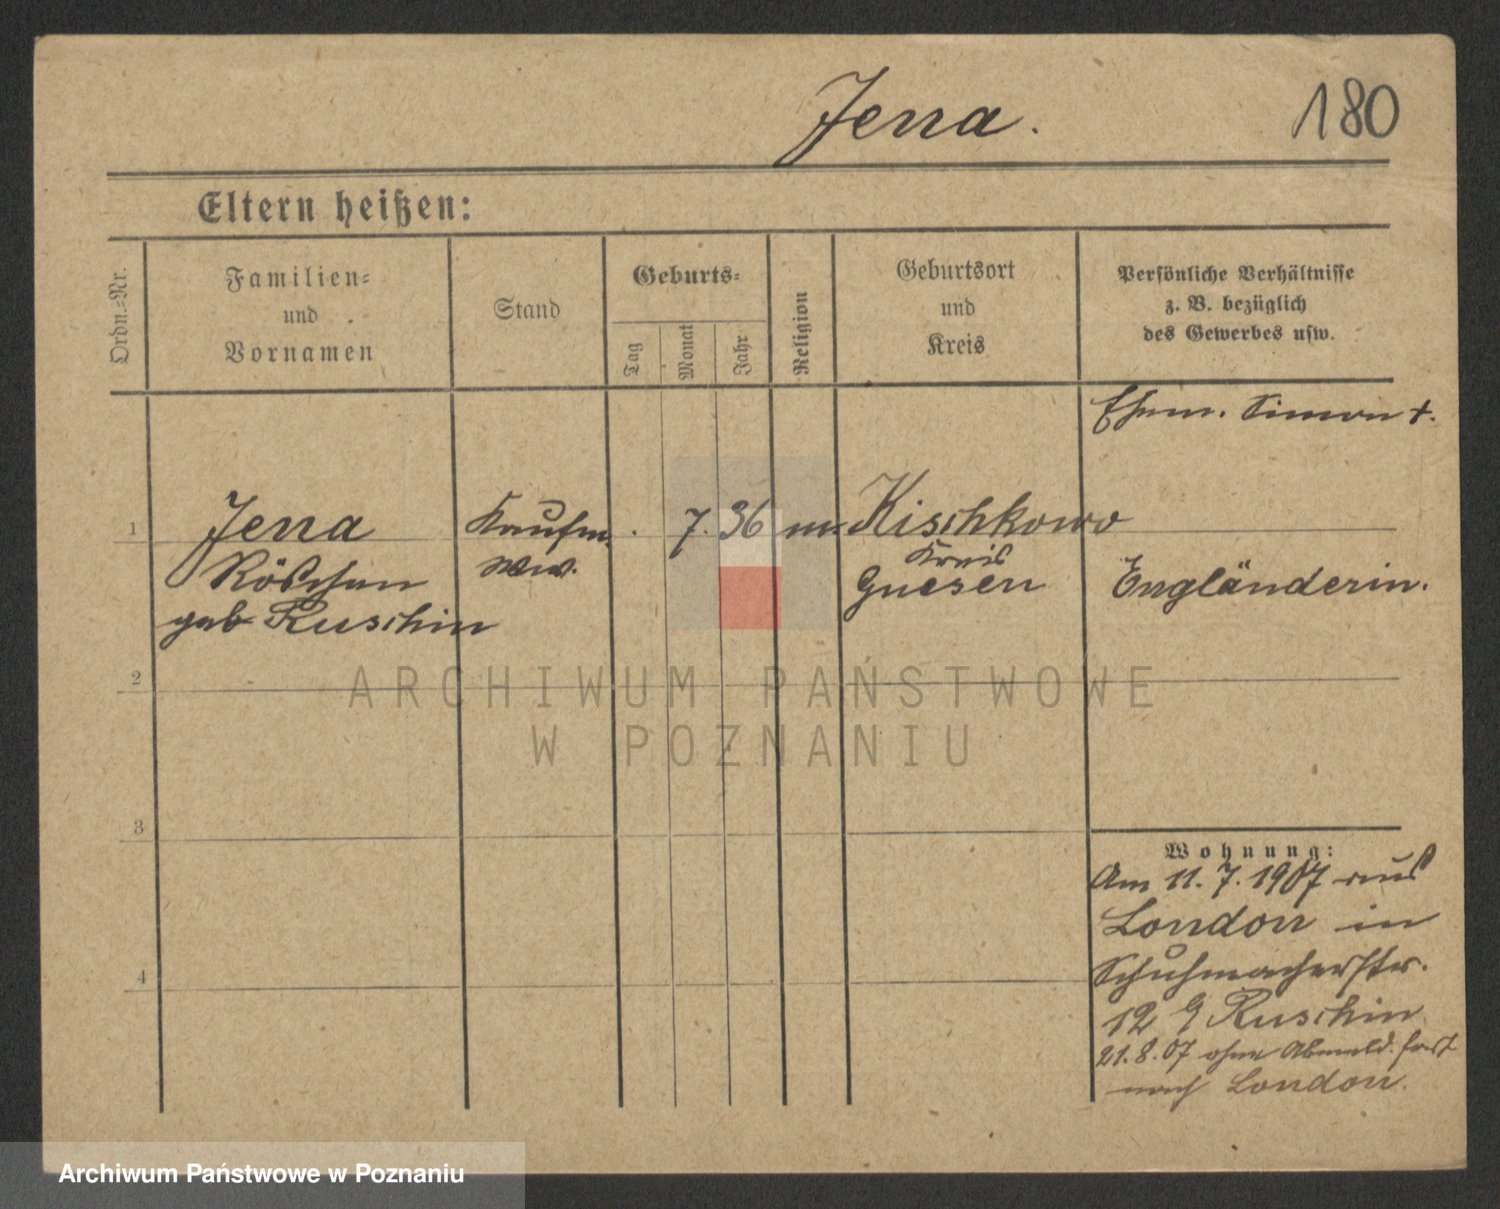 Jena.
180
Eltern heißen:
Ordn.-Nr.
Familien-
und
Vornamen
Stand
Geburts-
Tag
Monat
Jahr
Religion
Geburtsort
und
Kreis
Persönliche Verhältnisse
z. B. bezüglich
des Gewerbes usw.
Ehem. Simon +.
1
Jena
Röschen
geb Ruschin
Kaufm.
Ww.
7. 36
m.
Kischkowo
Kreis
Gnesen
Engländerin.
2
3
4
Wohnung:
Am 11. 7. 1907 aus
London in
Schuhmacherstr.
12 Ruschin
21. 8. 07 ohne Abmeld. fort
nach London.
ARCHIWUM PAŃSTWOWE
W POZNANIU
Archiwum Państwowe w Poznaniu